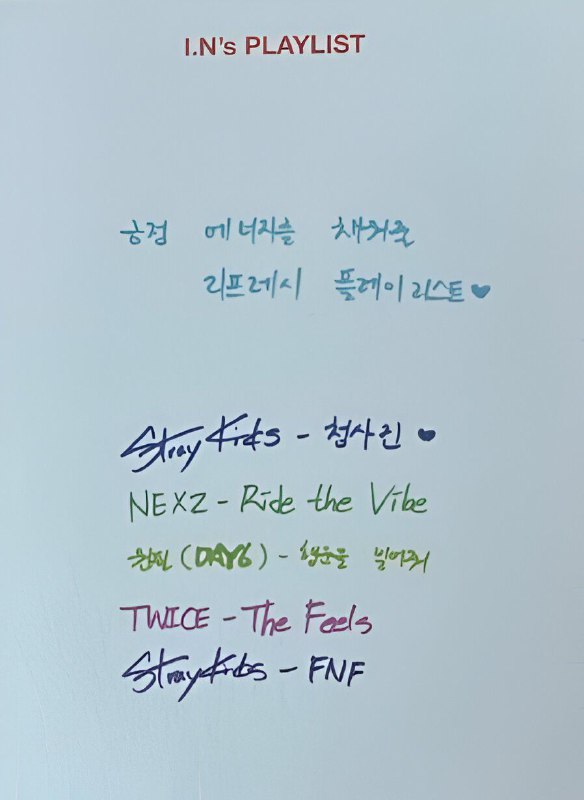 I.N's PLAYLIST
긍정 에너지를 채워줄
리프레시 플레이리스트♥
Stray Kids - 청사진 ♥
NEXZ - Ride the Vibe
원필 (DAY6) - 행운을 빌어줘
TWICE - The Feels
Stray Kids - FNF